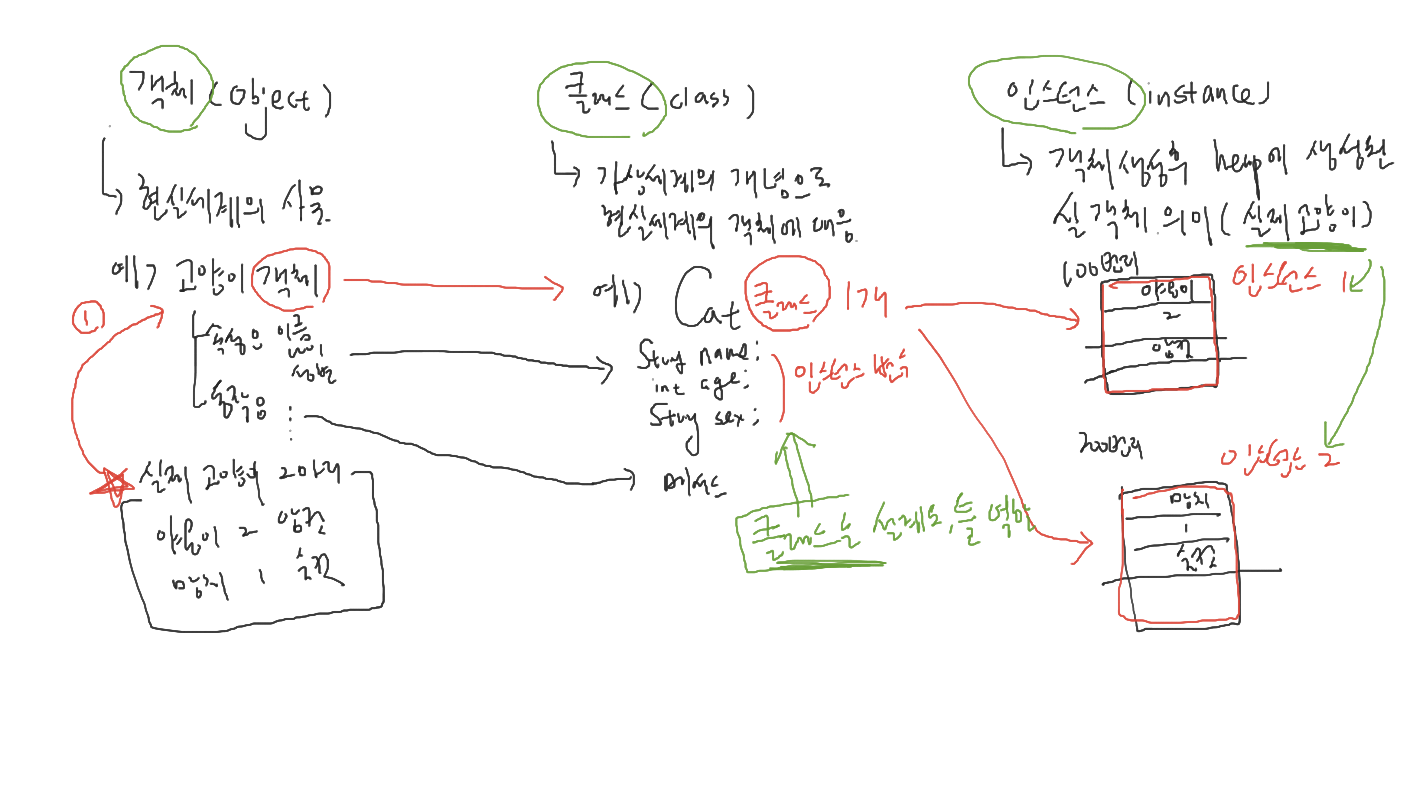 객체 (Object)
현실세계의 사물
예) 고양이 객체
①
속성은 이름
나이
성별
동작은
실제 고양이 2마리
야옹이 2 암컷
망치 1 숫컷
클래스 (class)
가상세계의 개념으로
현실세계의 객체에 대응
예) Cat 클래스 1개
String name;
int age;
String sex;
인스턴스 변수
메서드
클래스는 설계도, 틀 역할
인스턴스 (instance)
객체생성후 heap에 생성된
실 객체 의미 (실제 고양이)
100번지
인스턴스 1
야옹이
2
암컷
200번지
인스턴스 2
망치
1
숫컷